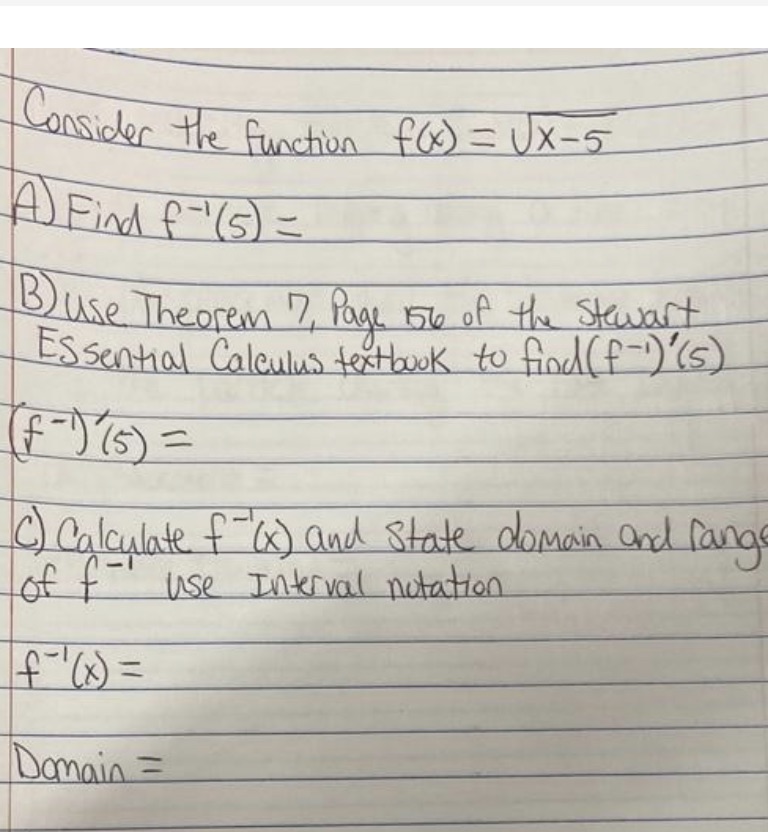 Consider the function f(x) = √x-5
A) Find f⁻¹(5) =
B) use Theorem 7, Page 156 of the Stewart
Essential Calculus textbook to find (f⁻¹)′(5)
(f⁻¹)′(5) =
C) Calculate f⁻¹(x) and State domain and range
of f⁻¹ use Interval notation
f⁻¹(x) =
Domain =